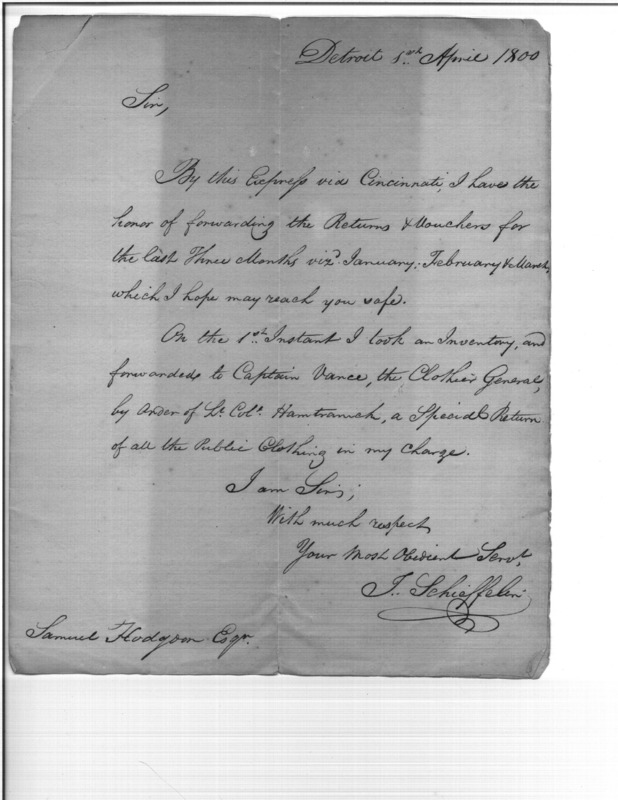 Detroit 5th April 1800
Sir,
By this Express via Cincinnati, I have the
honor of forwarding the Returns & Vouchers for
the last Three Months vizt. January, February & March,
which I hope may reach you safe.
On the 1st. Instant I took an Inventory, and
forwarded to Captain Vance, the Clothier General,
by Order of Lt. Colo. Hamtramck, a Special Return
of all the Public Clothing in my Charge.
I am Sir;
With much respect
Your Most Obedient Servt.
J. Schieffelin
Samuel Hodgdon Esqr.